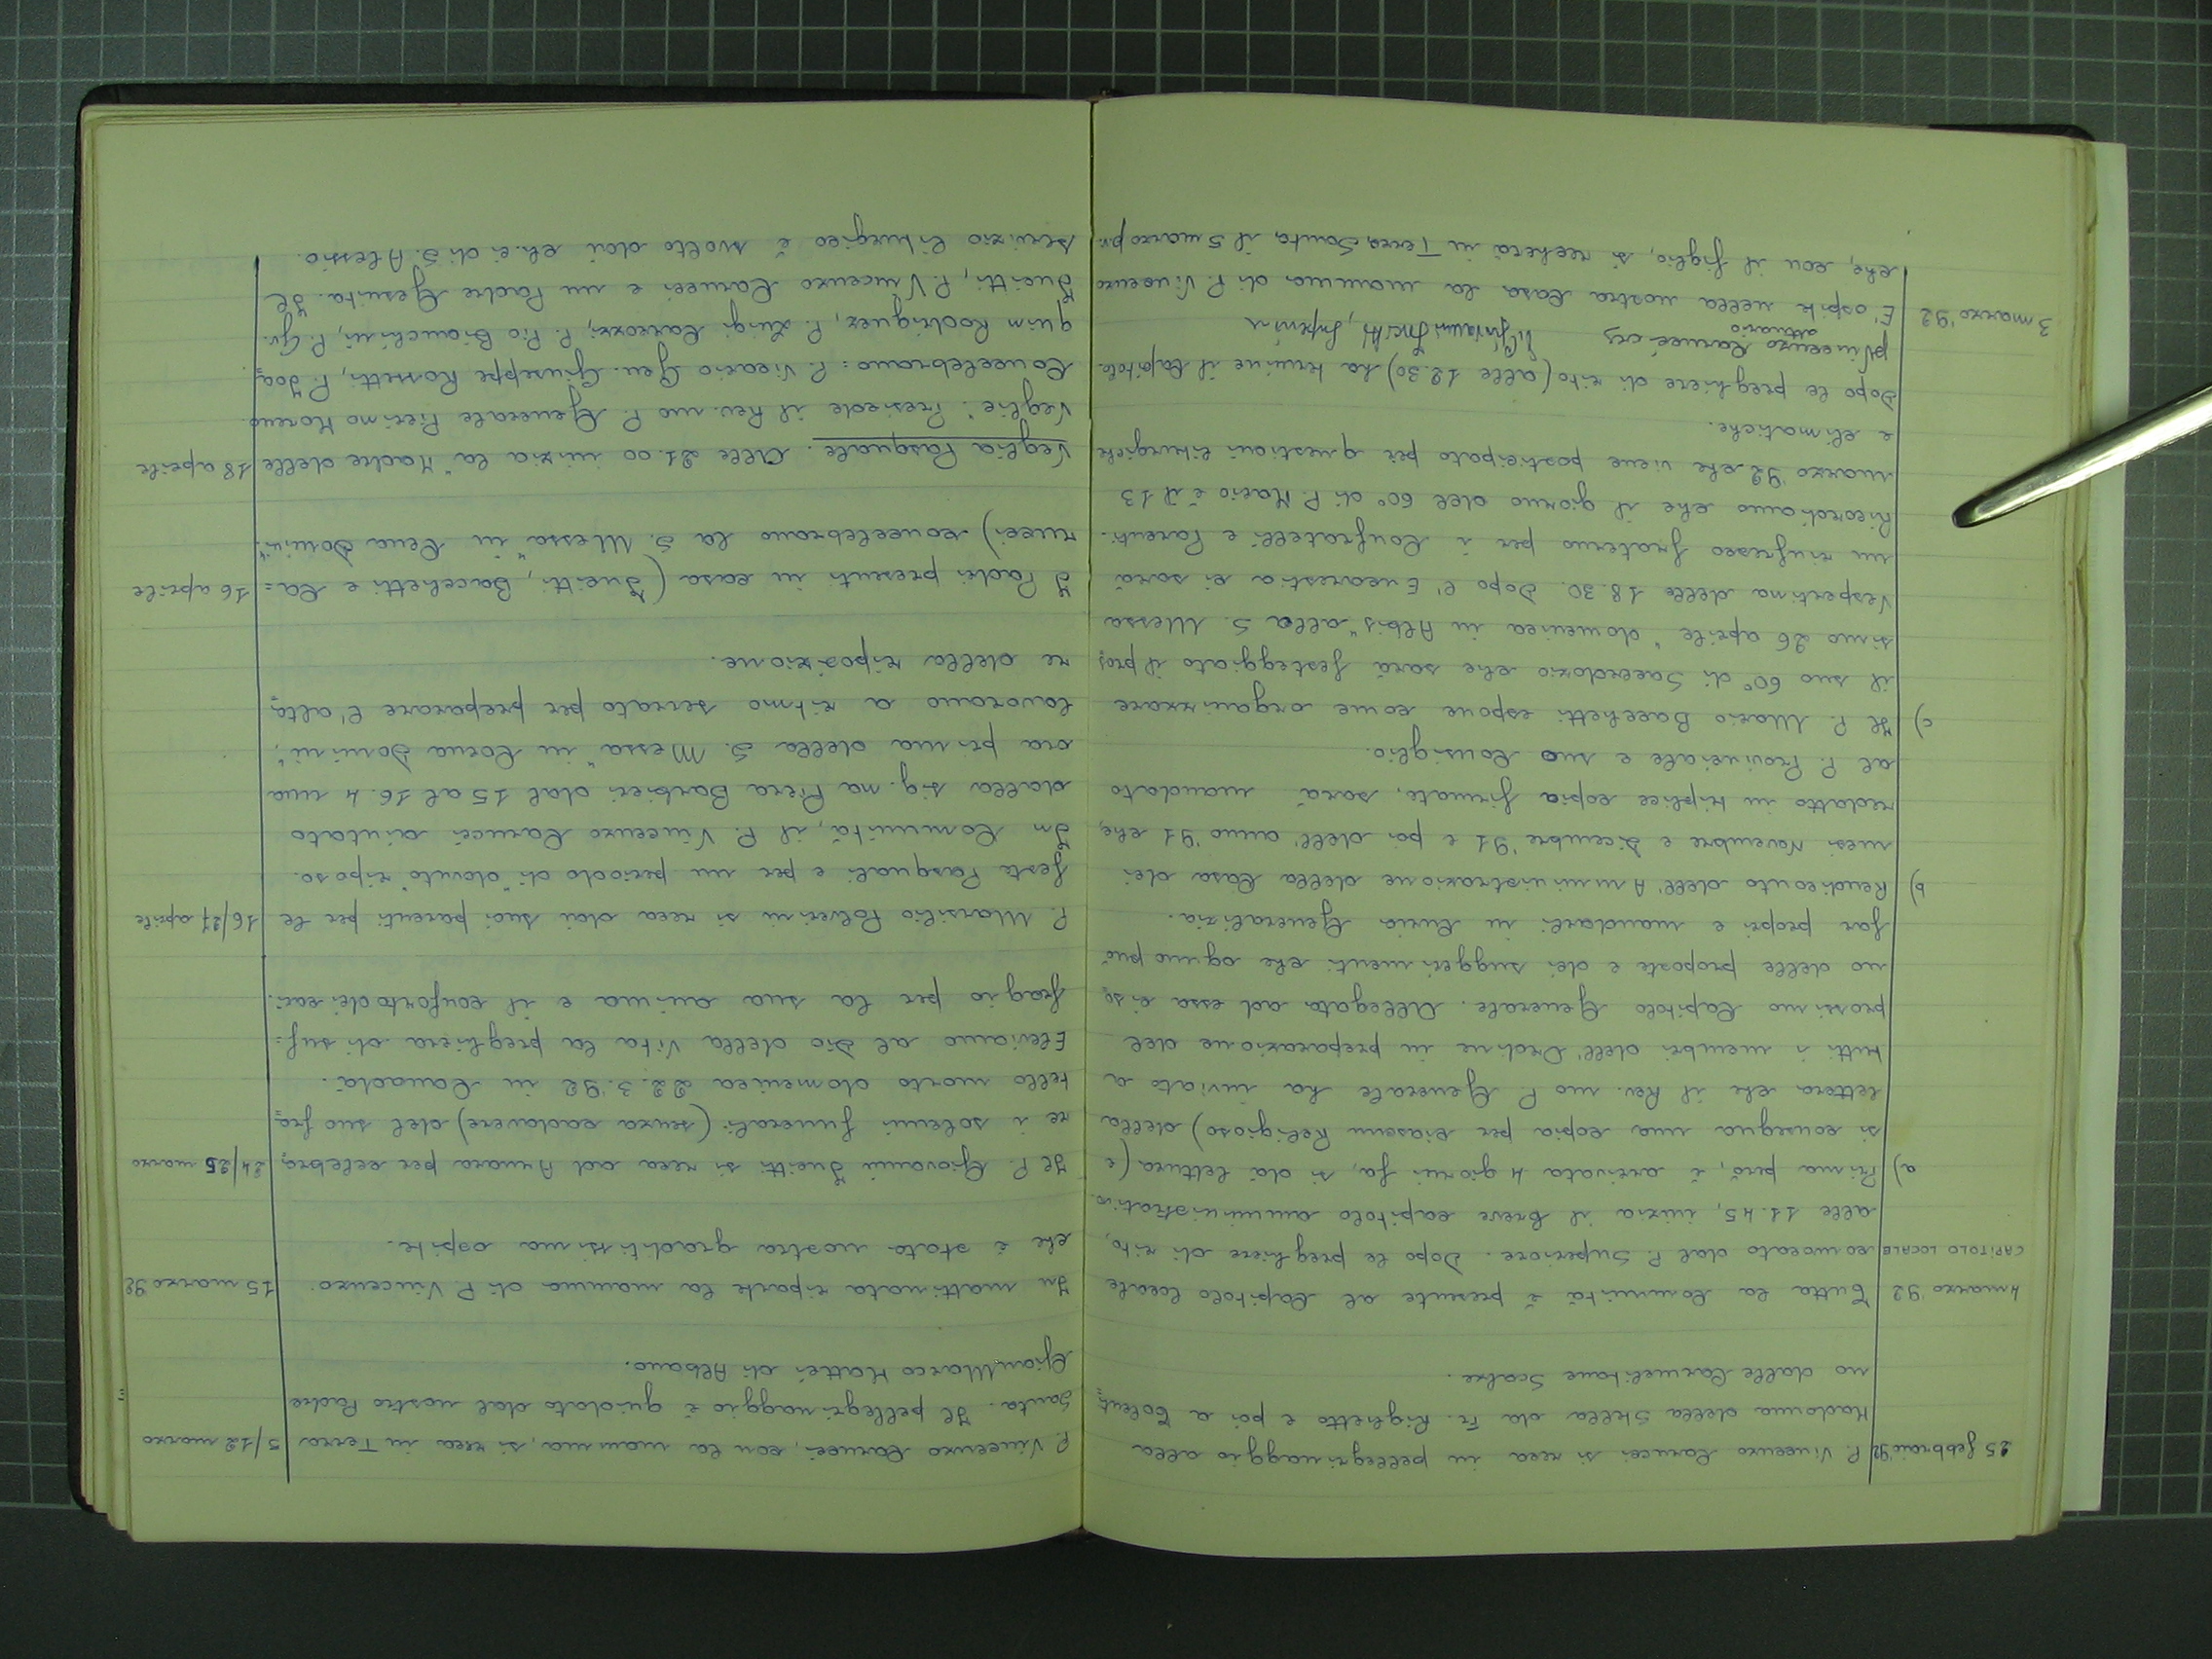 25 febbraio '92 P. Vincenzo Carucci si reca in pellegrinaggio alla
Madonna della Stella da Fr. Righetto e poi a Tolenti
no dalle Carmelitane Scalze.
4 marzo '92 Tutta la Comunità è presente al Capitolo locale
CAPITOLO LOCALE convocato dal P. Superiore. Dopo le preghiere di rito,
alle 11.45, inizia il breve capitolo amministrativo.
a) Prima però, è arrivata 4 giorni fa, si dà lettura (e
si consegna una copia per ciascun Religioso) della
lettera che il Rev.mo P. Generale ha inviato a
tutti i membri dell'Ordine in preparazione del
prossimo Capitolo Generale. Allegata ad essa ci so
no delle proposte e dei suggerimenti che ognuno può
far propri e mandarli in Curia Generalizia.
b) Rendiconto dell'Amministrazione della Casa dei
mesi Novembre e Dicembre '91 e poi dell'anno '91 che,
redatto in triplice copia firmate, sarà mandato
al P. Provinciale e suo Consiglio.
c) Il P. Mario Bacchetti espone come organizzare
il suo 60° di Sacerdozio che sarà festeggiato il pros
simo 26 aprile "domenica in Albis" alla S. Messa
Vespertina delle 18.30. Dopo l'Eucarestia ci sarà
un rinfresco fraterno per i Confratelli e Parenti.
Ricordiamo che il giorno del 60° di P. Mario è il 13
marzo '92 che viene posticipato per questioni liturgiche
e climatiche.
Dopo le preghiere di rito (alle 12.30) ha termine il Capitolo.
P. Vincenzo Carucci crs P. Giovanni Jucitti, Superiore
attuario
3 marzo '92 E' ospite nella nostra Casa la mamma di P. Vincenzo
che, con il figlio, si recherà in Terra Santa il 5 marzo p.v.
P. Vincenzo Carucci, con la mamma, si reca in Terra 5/12 marzo
Santa. Il pellegrinaggio è guidato dal nostro Padre
GianMarco Mattei di Albano.
In mattinata riparte la mamma di P. Vincenzo 15 marzo 92
che è stata nostra graditissima ospite.
Il P. Giovanni Jucitti si reca ad Amara per celebra 24/25 marzo
re i solenni funerali (senza cadavere) del suo fra
tello morto domenica 22.3.'92 in Canadà.
Eleviamo al Dio della Vita la preghiera di suf=
fragio per la sua anima e il conforto dei cari.
P. Marsilio Polverini si reca dai suoi parenti per le 16/27 aprile
feste Pasquali e per un periodo di "dovuto" riposo.
In Comunità, il P. Vincenzo Carucci aiutato
dalla sig.na Piera Barbieri dal 15 al 16.4 una
ora prima della S. Messa "in Coena Domini",
lavorano a ritmo serrato per preparare l'alta
re della riposizione.
I Padri presenti in casa (Jucitti, Bacchetti e Ca= 16 aprile
rucci) concelebrano la S. Messa "in Cena Domini".
Veglia Pasquale. Alle 21.00 inizia la "Madre delle 18 aprile
Veglie". Presiede il Rev.mo P. Generale Pierino Moreno
Concelebrano: P. Vicario Gen. Giuseppe Rossetti, P. Joa
quim Rodriguez, P. Luigi Carrozzi, P. Pio Bianchini, P. Gv.
Jucitti, P. Vincenzo Carucci e un Padre Gesuita. Il
servizio liturgico è svolto dai ch.ci di S. Alessio.